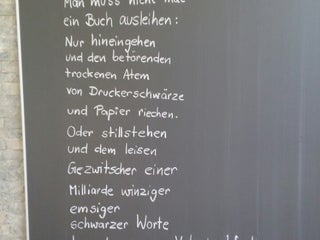 Man muss nicht mal
ein Buch ausleihen:
Nur hineingehen
und den betörenden
trockenen Atem
von Druckerschwärze
und Papier riechen.
Oder stillstehen
und dem leisen
Gezwitscher einer
Milliarde winziger
emsiger
schwarzer Worte